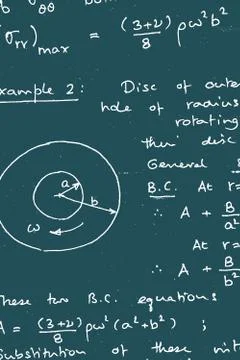 σ_θθ
σ_rr)max = (3+ν)/8 ρω²b²
xample 2: Disc of oute
hole of radius
rotating
thin disc
General S
B.C. At r=
∴ A + B/a²
At r=
∴ A + B/b²
a
b
ω
These two B.C. equations
A = (3+ν)/8 ρω²(a²+b²) ;
Substitution of these